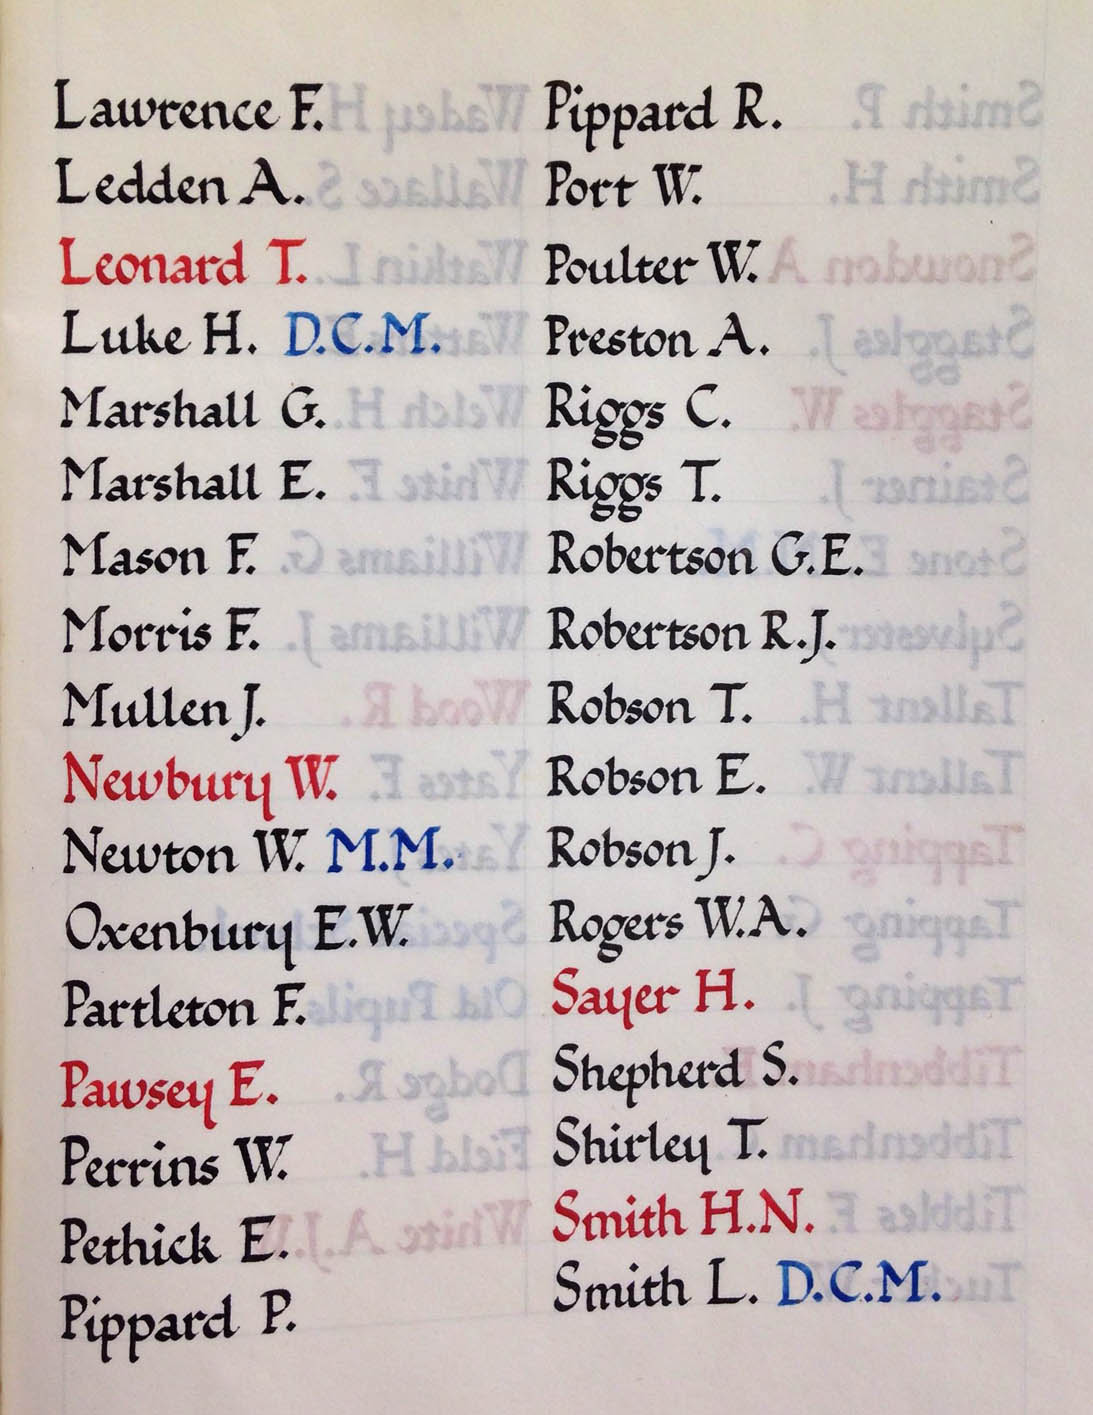 Lawrence F.
Ledden A.
Leonard T.
Luke H. D.C.M.
Marshall G.
Marshall E.
Mason F.
Morris F.
Mullen J.
Newbury W.
Newton W. M.M.
Oxenbury E.W.
Partleton F.
Pawsey E.
Perrins W.
Pethick E.
Pippard P.
Pippard R.
Port W.
Poulter W.
Preston A.
Riggs C.
Riggs T.
Robertson G.E.
Robertson R.J.
Robson T.
Robson E.
Robson J.
Rogers W.A.
Sayer H.
Shepherd S.
Shirley T.
Smith H.N.
Smith L. D.C.M.